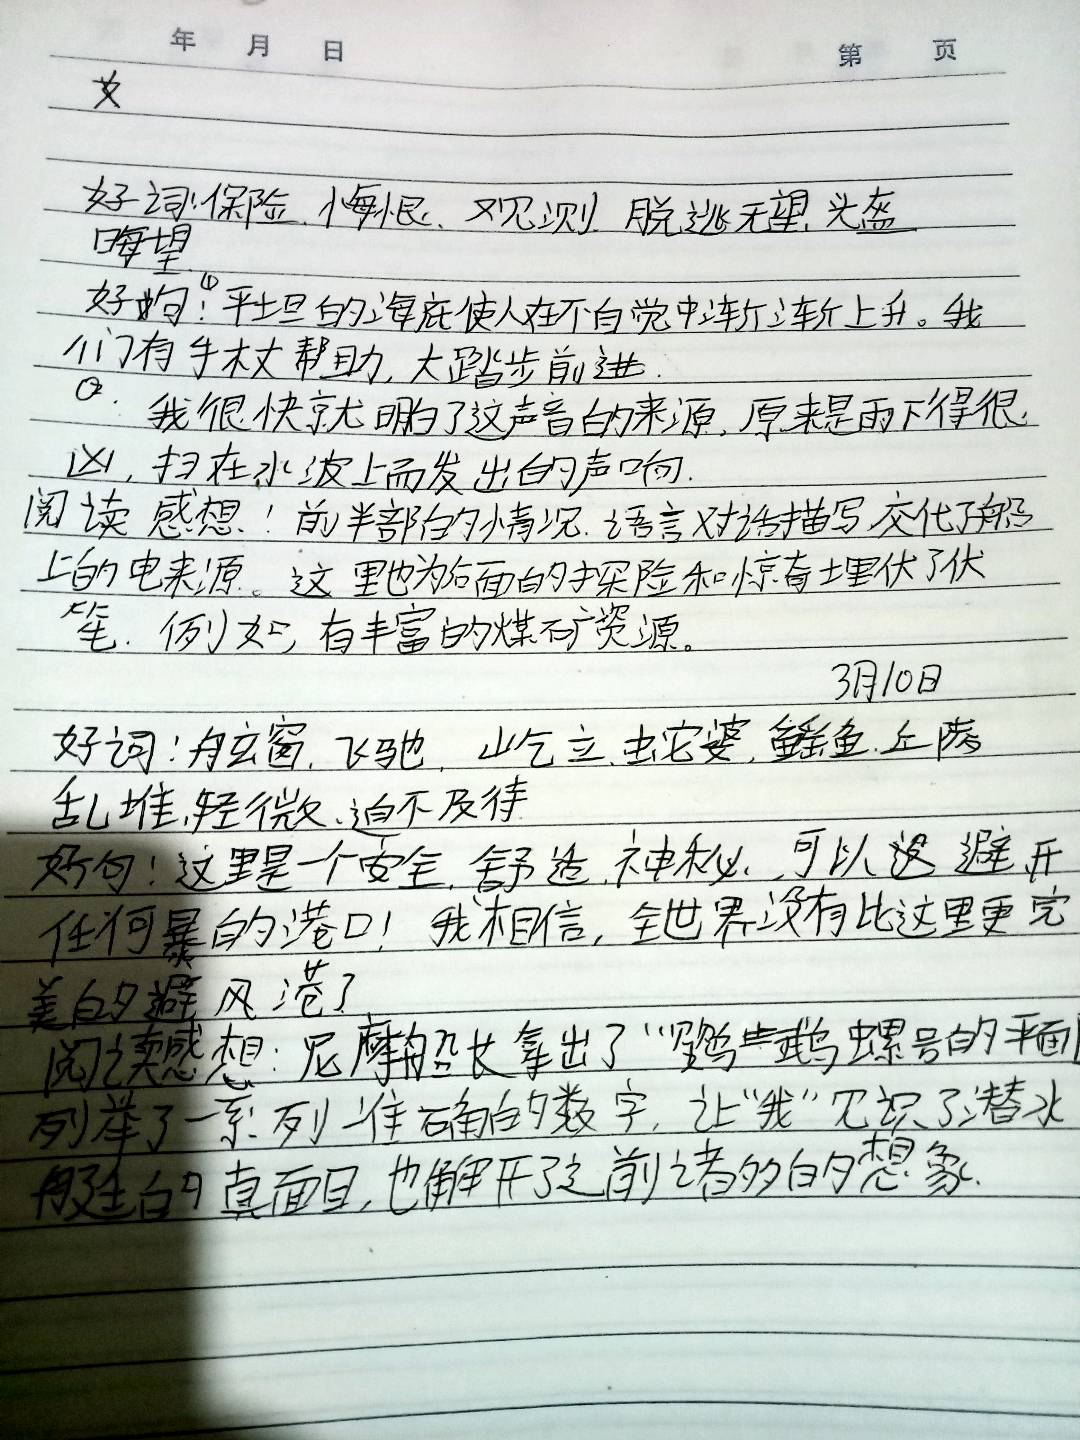 年 月 日 第 页
好词:保险、悔恨、观测、脱逃无望、头盔
晦望
好句:①平坦的海底使人在不自觉中渐渐上升。我
们有手杖帮助,大踏步前进.
②. 我很快就明白了这声音的来源,原来是雨下得很
凶,扫在水波上而发出的声响.
阅读感想!前半部的情况、语言对话描写交代了船
上的电来源。这里也为后面的探险和惊奇埋伏了伏
笔.例如,有丰富的煤矿资源。
3月10日
好词:舷窗、飞驰、屹立、蛇婆、鳐鱼、丘陵
乱堆、轻微、迫不及待
好句:这里是一个安全、舒适、神秘、可以避开
任何暴的港口!我相信,全世界没有比这里更完
美的避风港了
阅读感想:尼摩船长拿出了“鹦鹉螺号的平面
列举了一系列准确的数字,让“我”见识了潜水
艇的真面目,也解开了之前诸多的想象.